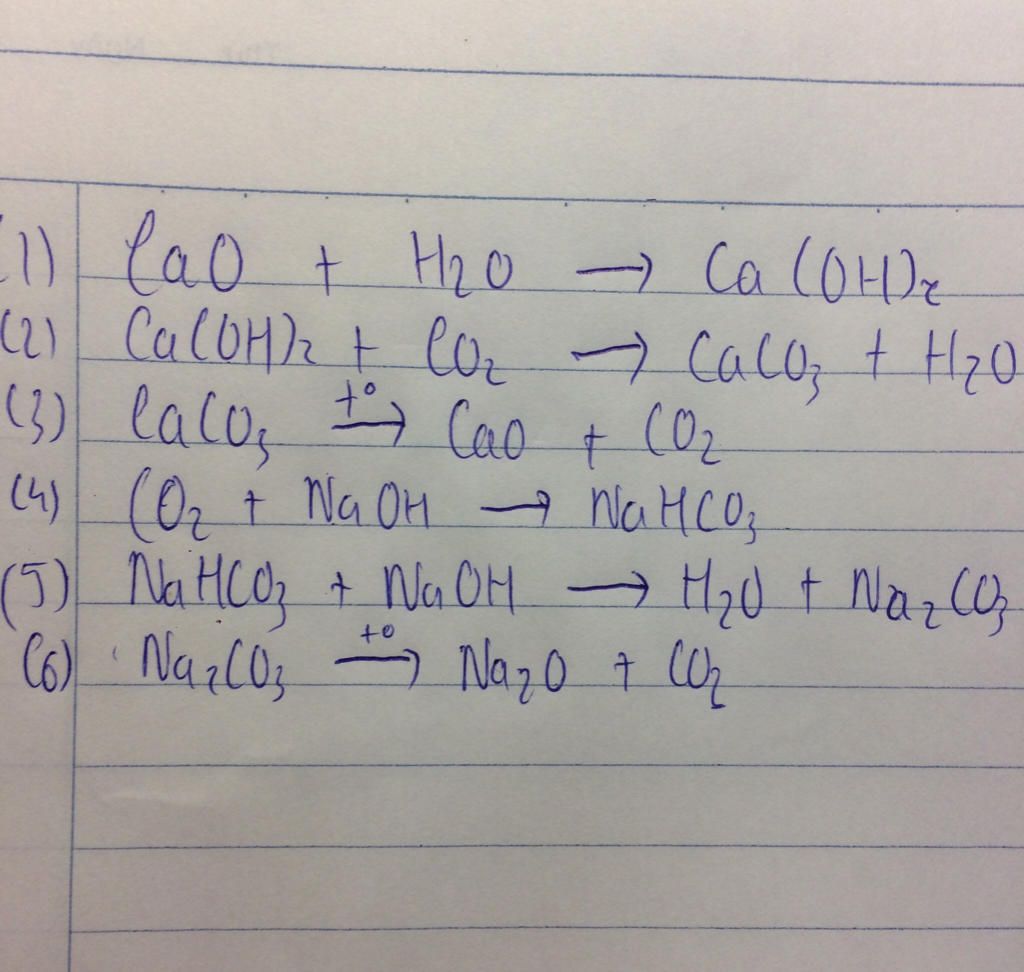 (1) CaO + H2O → Ca(OH)2
(2) Ca(OH)2 + CO2 → CaCO3 + H2O
(3) CaCO3 t° → CaO + CO2
(4) CO2 + NaOH → NaHCO3
(5) NaHCO3 + NaOH → H2O + Na2CO3
(6) Na2CO3 t° → Na2O + CO2